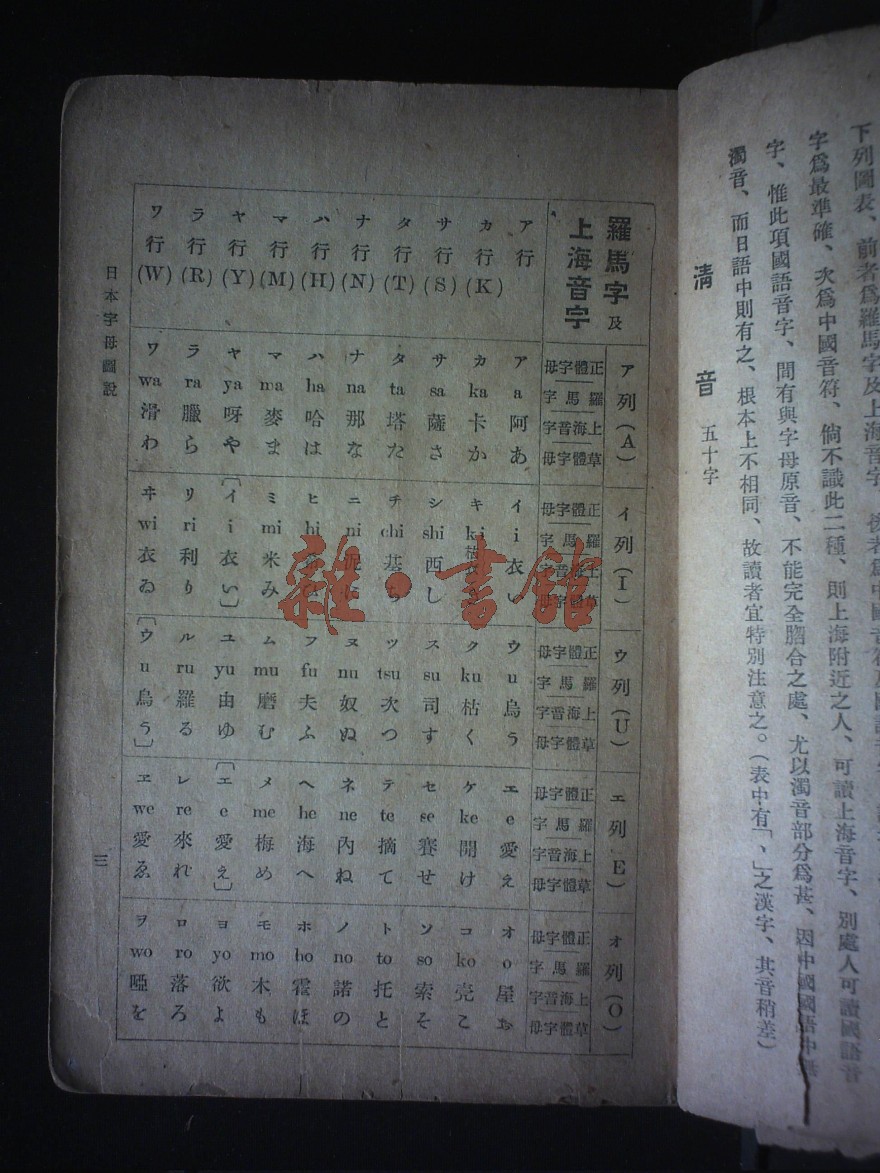 下列圖表、前者爲羅馬字及上海音字、後者爲中國音符及國語音字、
字爲最準確、次爲中國音符、倘不識此二種、則上海附近之人、可讀上海音字、別處人可讀國語音
字、惟此項國語音字、間有與字母原音、不能完全脗合之處、尤以濁音部分爲甚、因中國國語中無
濁音、而日語中則有之、根本上不相同、故讀者宜特別注意之。(表中有「、」之漢字、其音稍差)
清音 五十字
羅馬字及上海音字
ア列(A) イ列(I) ウ列(U) エ列(E) オ列(O)
正體字母 羅馬字 上海音字 草體字母
正體字母 羅馬字 上海音字 草體字母
正體字母 羅馬字 上海音字 草體字母
正體字母 羅馬字 上海音字 草體字母
正體字母 羅馬字 上海音字 草體字母
ア行 ア a 阿 あ イ i 衣 い ウ u 烏 う エ e 愛 え オ o 屋 お
カ行(K) カ ka 卡 か キ ki ク ku 枯 く ケ ke 開 け コ ko 壳 こ
サ行(S) サ sa 薩 さ シ shi 西 し ス su 司 す セ se 賽 せ ソ so 索 そ
タ行(T) タ ta 塔 た チ chi 基 ち ツ tsu 次 つ テ te 摘 て ト to 托 と
ナ行(N) ナ na 那 な ニ ni 呢 に ヌ nu 奴 ぬ ネ ne 內 ね ノ no 諾 の
ハ行(H) ハ ha 哈 は ヒ hi フ fu 夫 ふ ヘ he 海 へ ホ ho 霍 ほ
マ行(M) マ ma 麥 ま ミ mi 米 み ム mu 磨 む メ me 梅 め モ mo 木 も
ヤ行(Y) ヤ ya 呀 や 〔イ i 衣 い〕 ユ yu 由 ゆ 〔エ e 愛 え〕 ヨ yo 欲 よ
ラ行(R) ラ ra 臘 ら リ ri 利 り ル ru 羅 る レ re 來 れ ロ ro 落 ろ
ワ行(W) ワ wa 滑 わ ヰ wi 衣 ゐ 〔ウ u 烏 う〕 ヱ we 愛 ゑ ヲ wo 啞 を
日本字母圖說
三
雜·書館